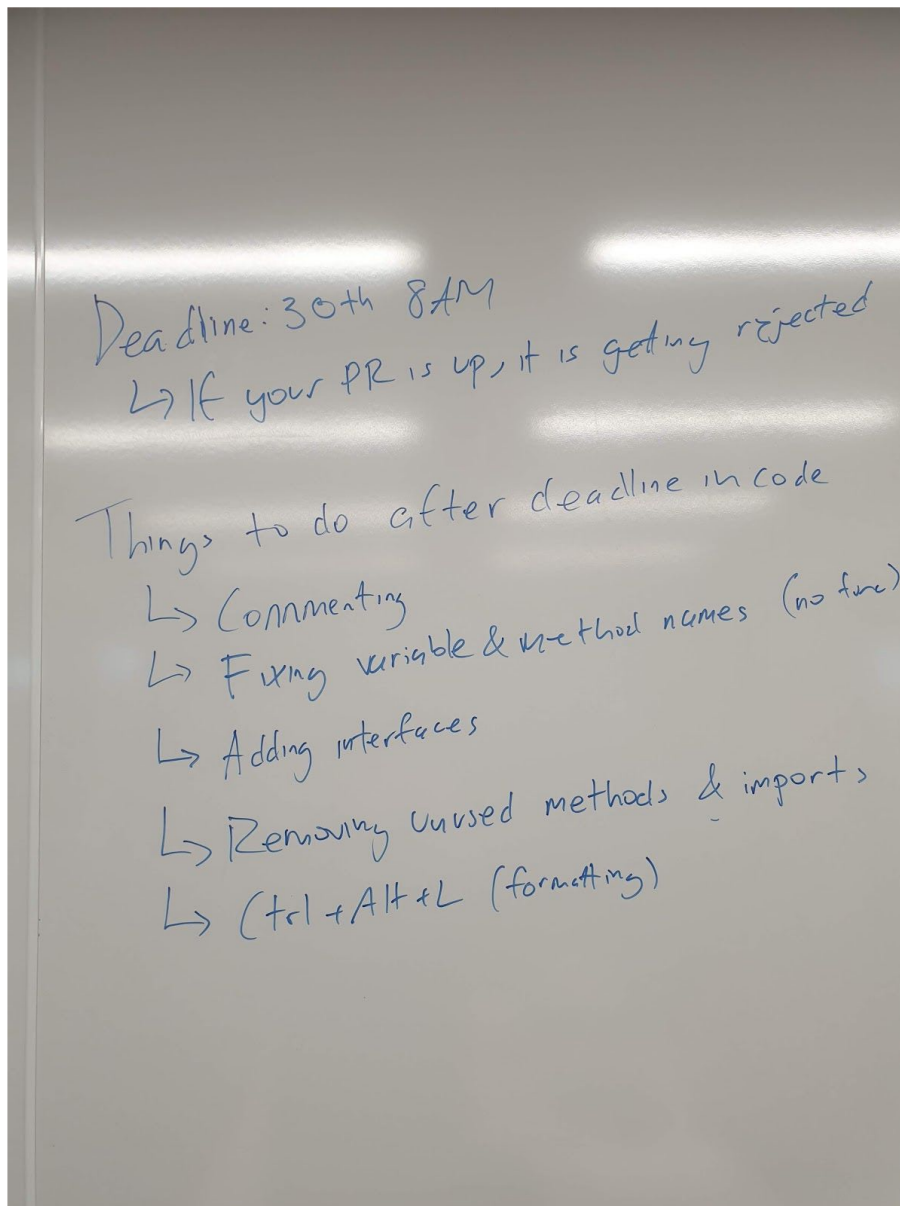 Deadline: 30th 8AM
↳ If your PR is up, it is geting rejected
Things to do after deadline in code
↳ Commenting
↳ Fixing variable & method names (no func)
↳ Adding interfaces
↳ Removing unused methods & imports
↳ Ctrl + Alt + L (formatting)